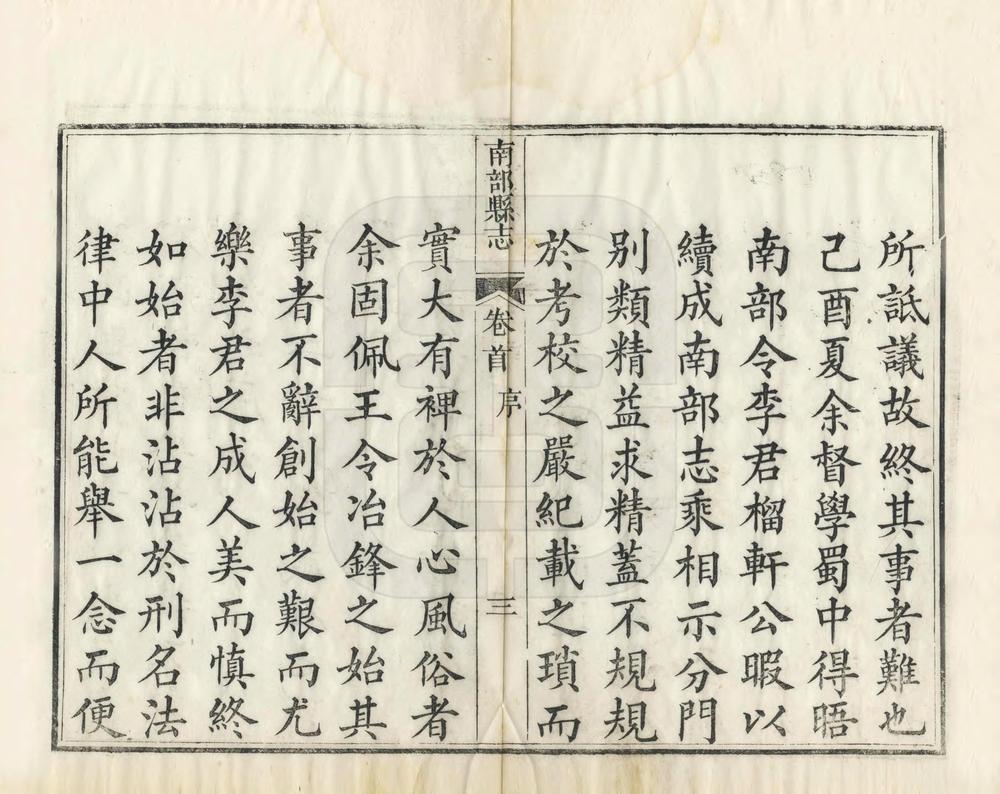 所詆議故終其事者難也
己酉夏余督學蜀中得晤
南部令李君榴軒公暇以
續成南部志乘相示分門
别類精益求精蓋不規規
於考校之嚴紀載之瑣而
南部縣志
卷首
序
三
實大有裨於人心風俗者
余固佩王令冶鋒之始其
事者不辭創始之艱而尤
樂李君之成人美而慎終
如始者非沾沾於刑名法
律中人所能舉一念而便